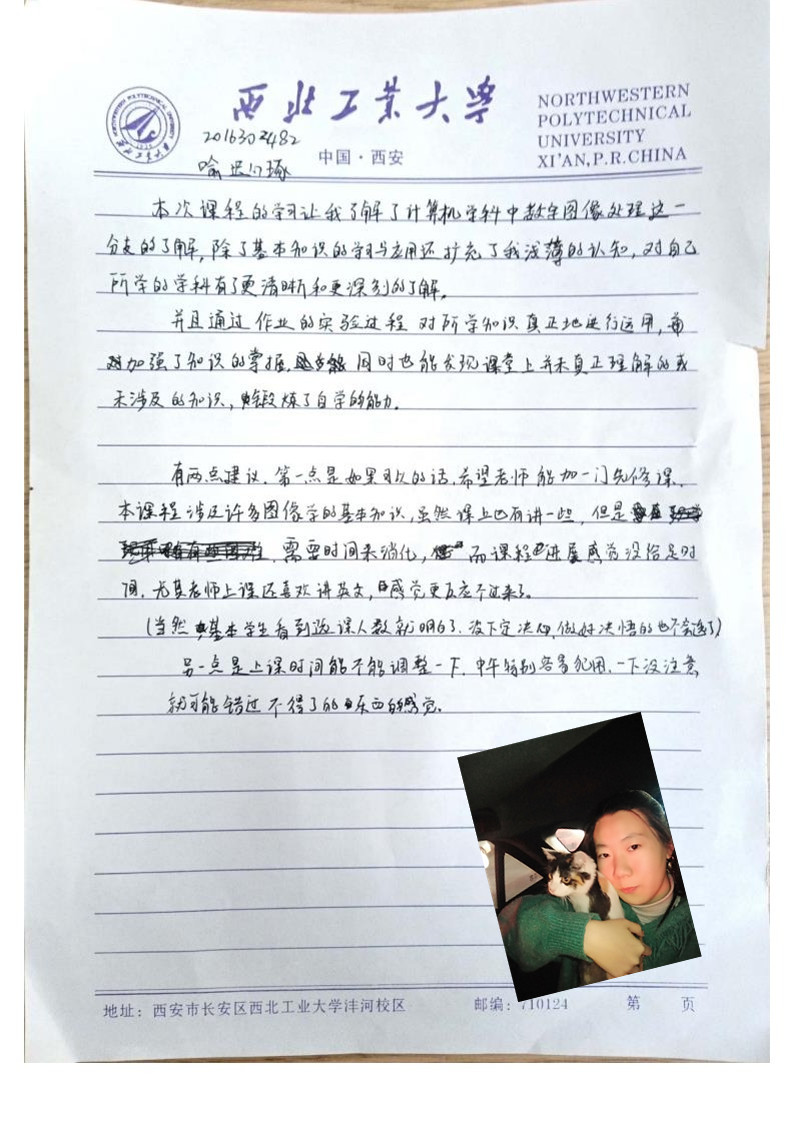 西北工业大学
NORTHWESTERN
POLYTECHNICAL
UNIVERSITY
XI'AN, P.R.CHINA
中国·西安
2016302482
喻
本次课程的学习让我了解了计算机学科中数字图像处理这一
分支的了解,除了基本知识的学习与应用还扩充了我浅薄的认知,对自己
所学的学科有了更清晰和更深刻的了解。
并且通过作业的实验过程对所学知识真正地进行运用,
加强了知识的掌握,同时也能发现课堂上并未真正理解的或
未涉及的知识,锻炼了自学的能力。
有两点建议,第一点是如果可以的话,希望老师能加一门先修课,
本课程涉及许多图像学的基本知识,虽然课上也有讲一些,但是
需要时间来消化,而课程进展感觉没给足时
间,尤其老师上课还喜欢讲英文,感觉更反应不过来了。
(当然基本学生看到返课人数就明白了,没下定决心,做好决悟的也不会选了)
另一点是上课时间能不能调整一下,中午特别容易犯困,一下没注意
就可能错过不得了的东西的感觉。
地址:西安市长安区西北工业大学沣河校区 邮编:710124 第 页